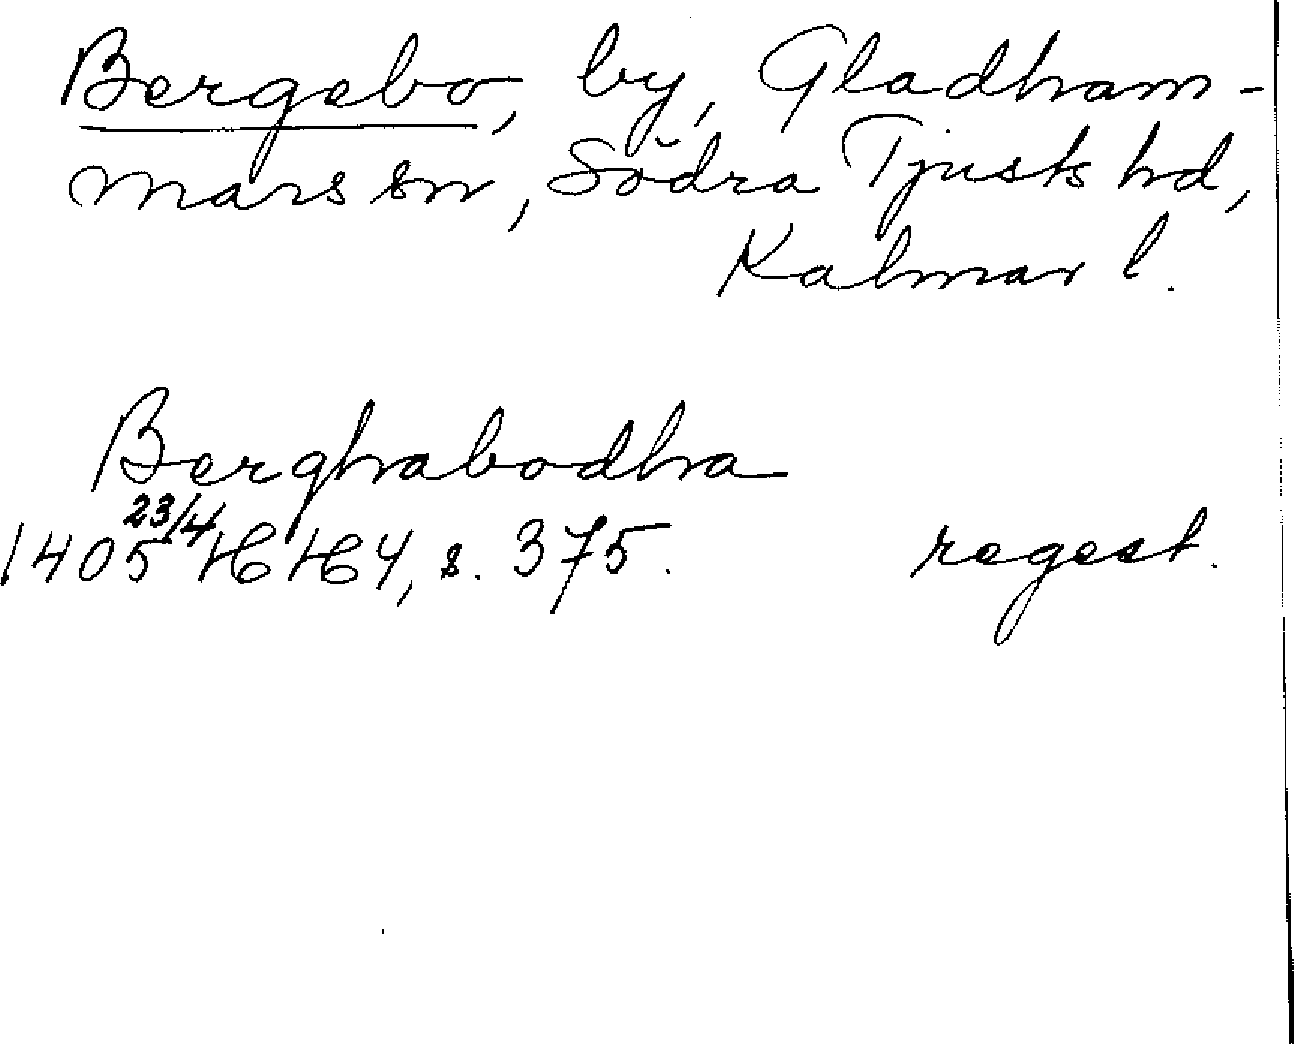 Bergebo, by, Gladham-
mars sn, Södra Tjusts hd,
Kalmar l.
Berghabodha
1405 23/4 HH 4, s. 375. regest.